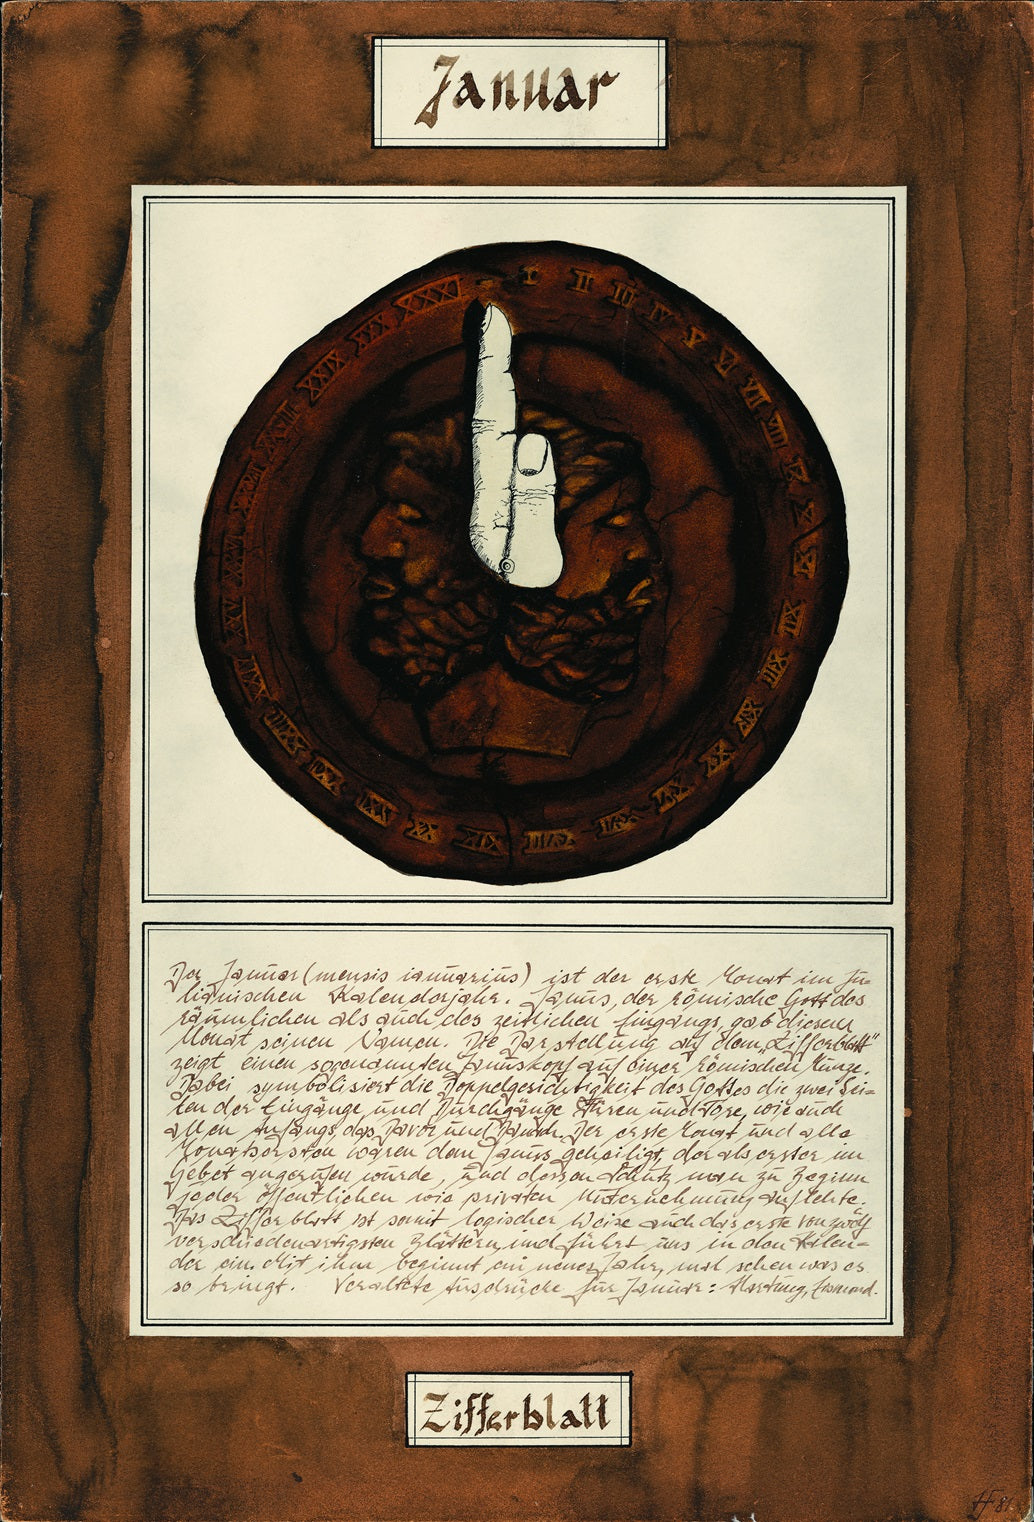 Januar
XXXI I II III IV V VI VII VIII IX X XI XII XIII XIV XV XVI XVII XVIII XIX XX XXI XXII XXIII XXIV XXV XXVI XXVII XXVIII XXIX XXX
Der Januar (mensis ianuarius) ist der erste Monat im Ju-
lianischen Kalenderjahr. Janus, der römische Gott des
räumlichen als auch des zeitlichen Eingangs, gab diesem
Monat seinen Namen. Die Darstellung auf dem „Zifferblatt"
zeigt einen sogenannten Januskopf auf einer römischen Münze.
Dabei symbolisiert die Doppelgesichtigkeit des Gottes die zwei Sei-
ten der Eingänge und Durchgänge Türen und Tore, wie auch
allen Anfangs, das Davor und Danach. Der erste Monat und alle
Monatsersten waren dem Janus geheiligt, der als erster im
Gebet angerufen wurde, und dessen Schutz man zu Beginn
jeder öffentlichen wie privaten Unternehmung anflehte.
Das Zifferblatt ist somit logischer Weise auch das erste von zwölf
verschiedenartigsten Blättern und führt uns in den Kalen-
der ein. Mit ihm beginnt ein neues Jahr, mal sehen was es
so bringt. Veraltete Ausdrücke für Januar: Hartung,
Zifferblatt
81